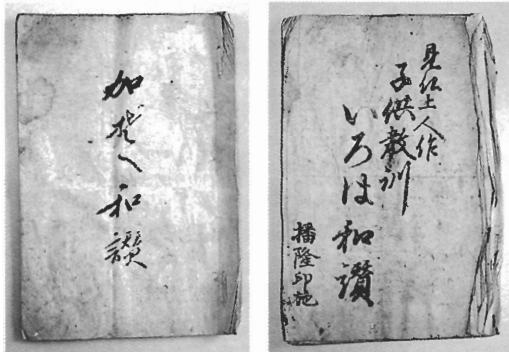 加ぞへ和讃
見仏上人作
子供教訓
いろは和讃
播隆印施